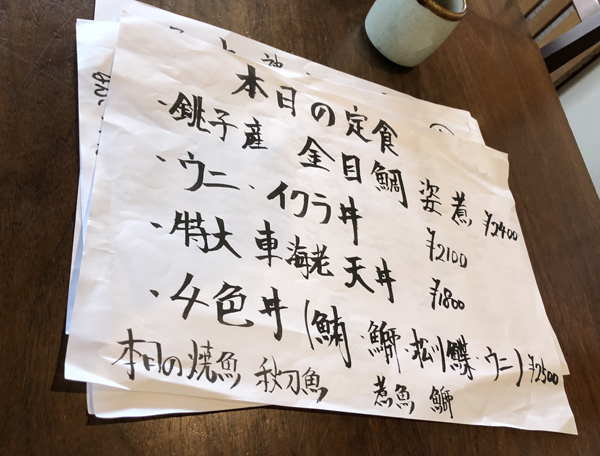 本日の定食
・銚子産 金目鯛 姿煮 ¥2400
・ウニ・イクラ丼 ¥2100
・特大 車海老 天丼 ¥1800
・4色丼(鮪・鰤・松川鰈・ウニ) ¥2500
本日の焼魚 秋刀魚 煮魚 鰤